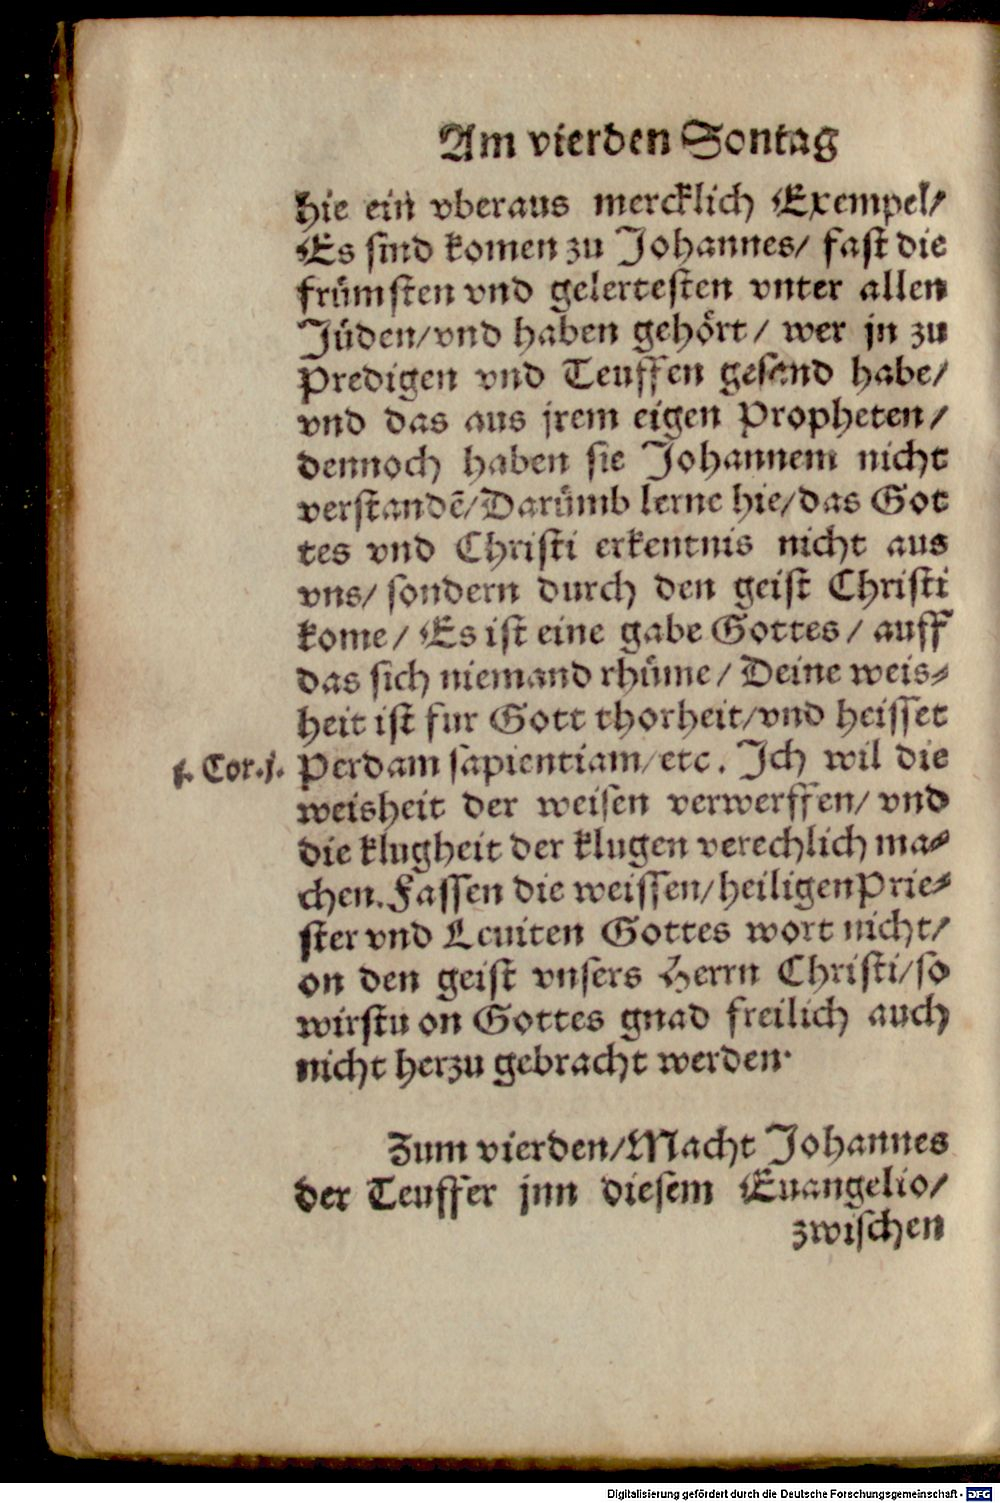 Am vierden Sontag
hie ein vberaus mercklich Exempel/
Es sind komen zu Johannes/ fast die
frümsten vnd gelertesten vnter allen
Jüden/vnd haben gehört/ wer jn zu
Predigen vnd Teuffen gesand habe/
vnd das aus jrem eigen Propheten/
dennoch haben sie Johannem nicht
verstandē/Darümb lerne hie/das Got
tes vnd Christi erkentnis nicht aus
vns/ sondern durch den geist Christi
kome/ Es ist eine gabe Gottes/ auff
das sich niemand rhüme/ Deine weis⸗
heit ist fur Gott thorheit/vnd heisset
j. Cor.j. Perdam sapientiam/etc. Ich wil die
weisheit der weisen verwerffen/ vnd
die klugheit der klugen verechlich ma⸗
chen. Fassen die weissen/heiligen Prie⸗
ster vnd Leuiten Gottes wort nicht/
on den geist vnsers Herrn Christi/so
wirstu on Gottes gnad freilich auch
nicht herzu gebracht werden.
Zum vierden/Macht Johannes
der Teuffer jnn diesem Euangelio/
zwischen
Digitalisierung gefördert durch die Deutsche Forschungsgemeinschaft - DFG